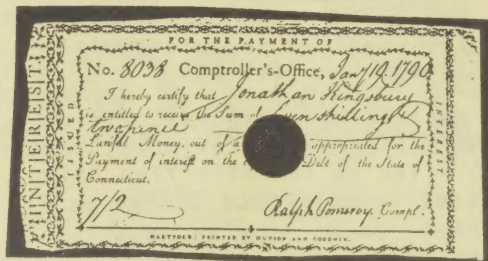 FOR THE PAYMENT OF
No. 8038 Comptroller's-Office, Jany 19. 1790
I hereby certify that Jonathan Kingsbury
is entitled to receive the Sum of Seven shillings &
two pence
Lawful Money, out of a appropriated for the
Payment of interest on the Debt of the State of
Connecticut.
7/2 Ralph Pomeroy. Compl.
HARTFORD: PRINTED BY HUDSON AND GOODWIN.
INTEREST
ISSUED
INTEREST